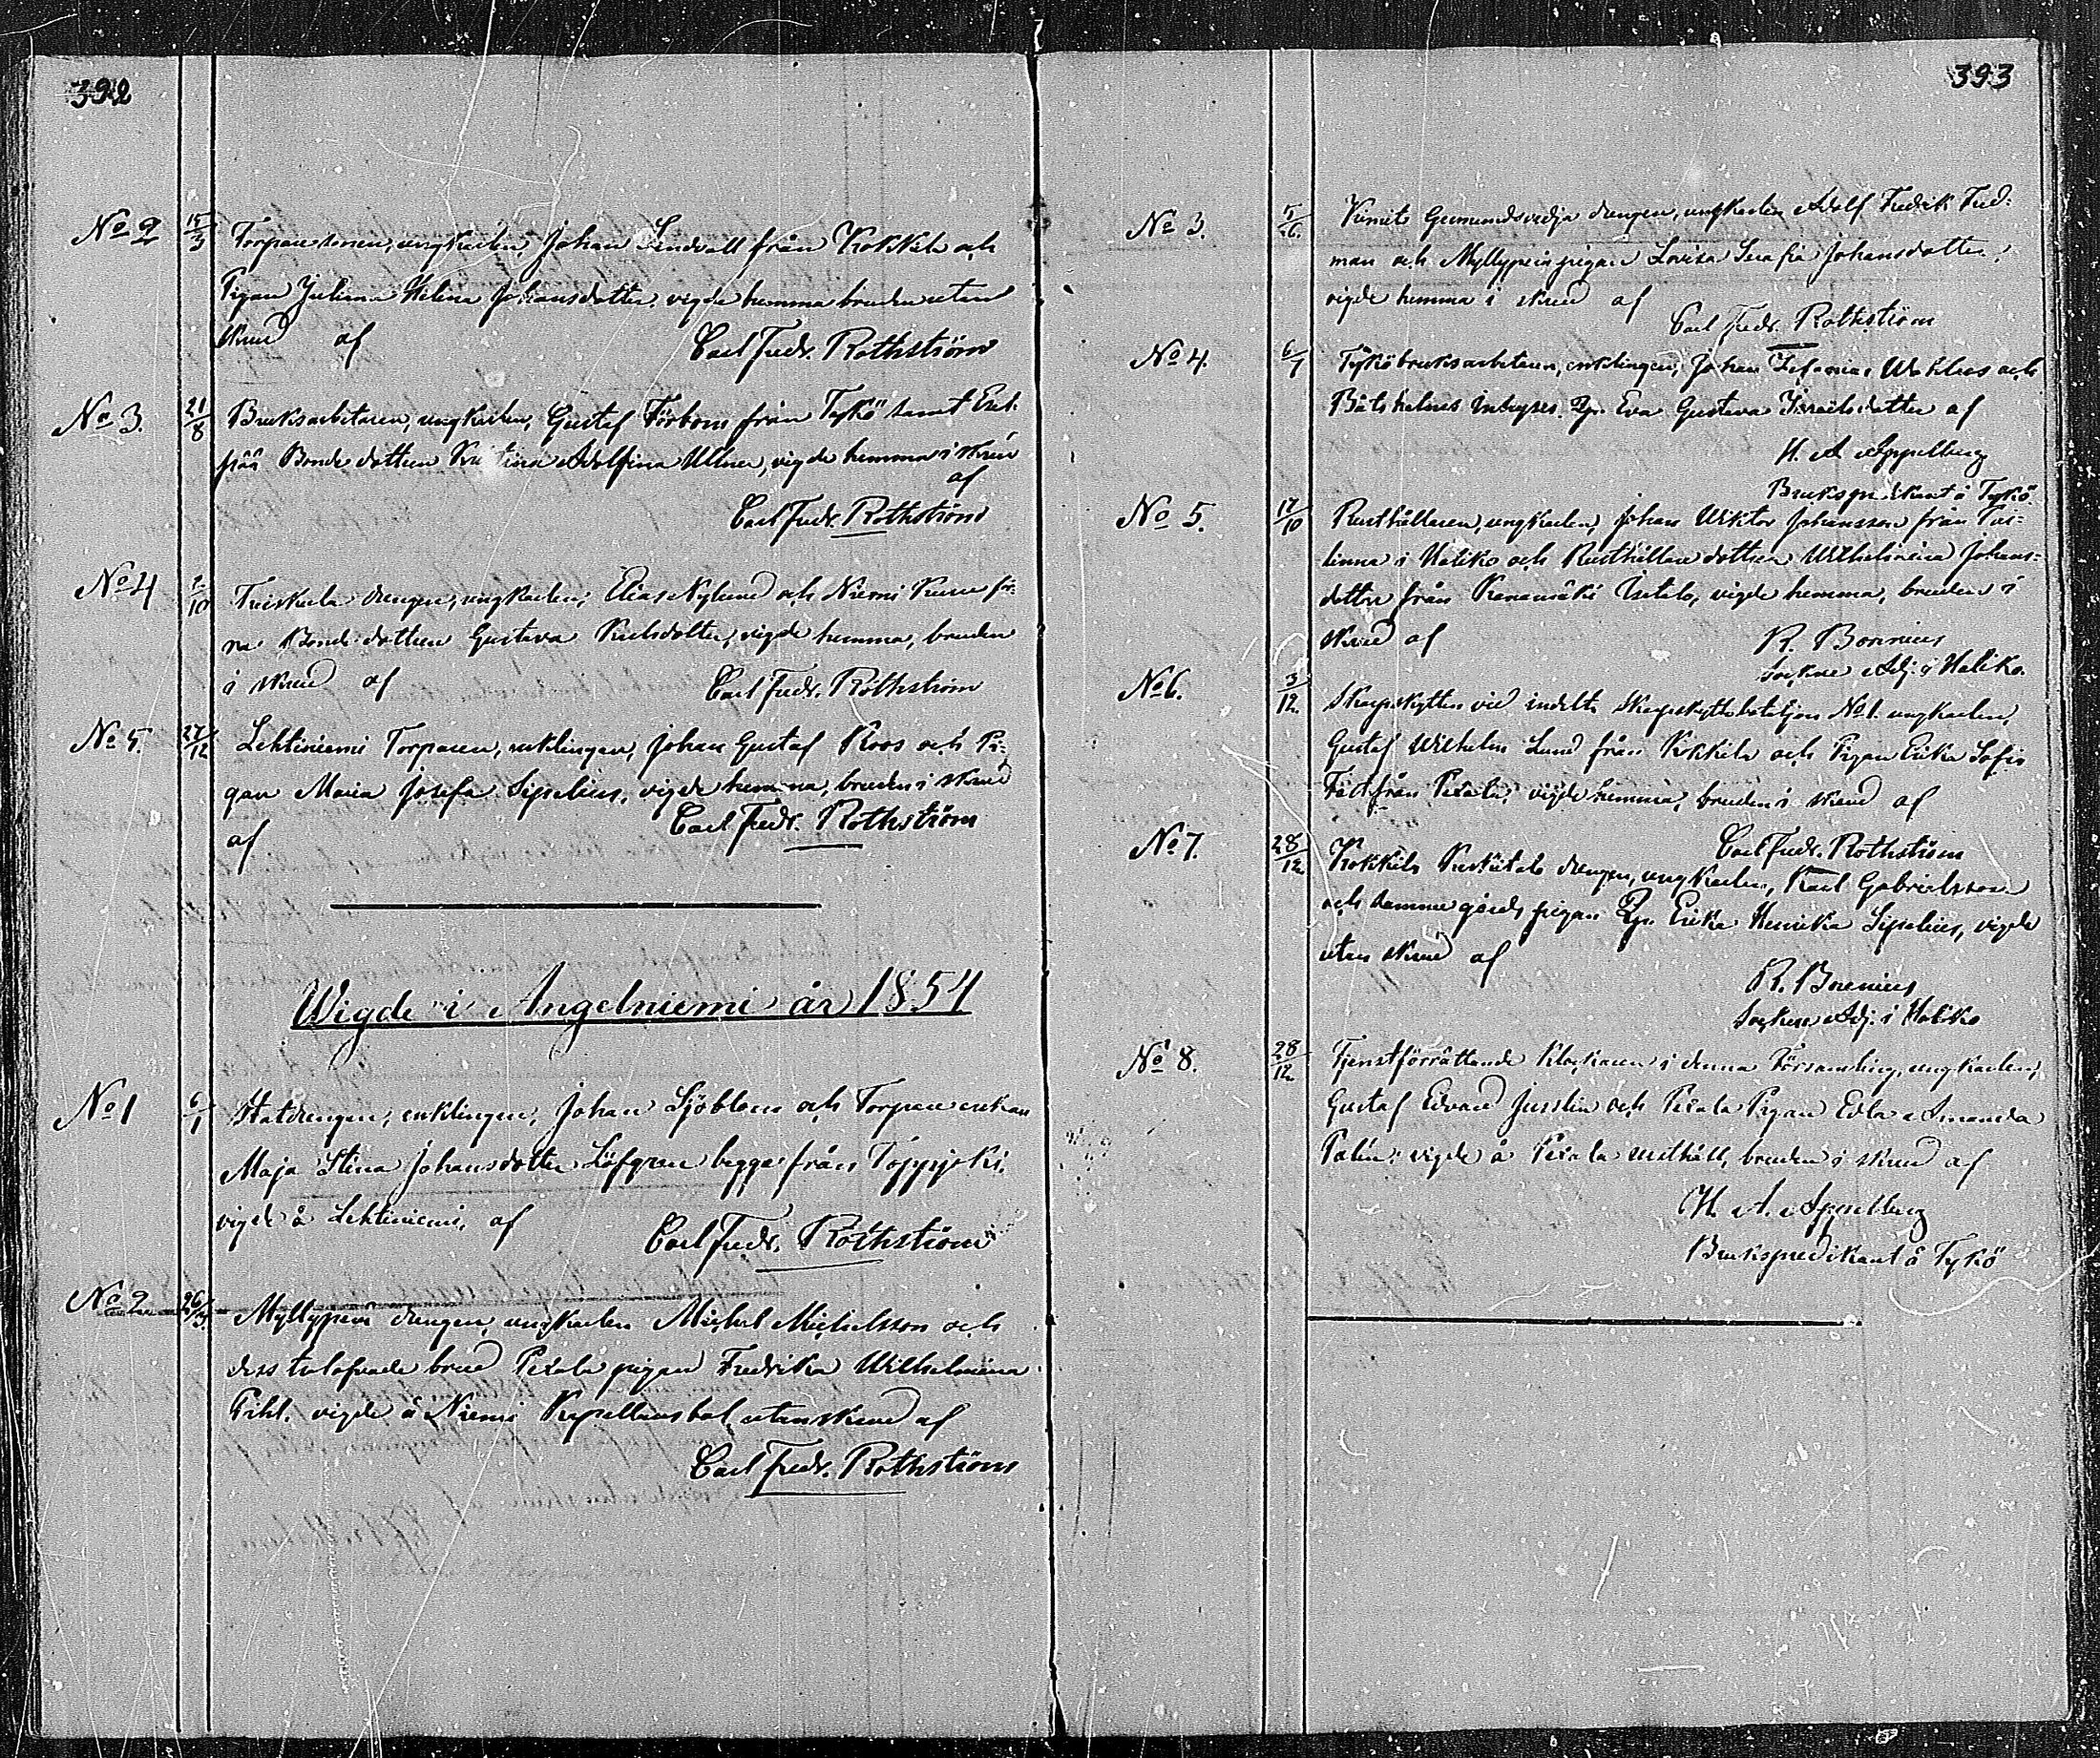 392
No 2 15/3 Torpare sonen, ungkarlen, Johan Lindvall från Kokkila och
Pigan Juliana Helena Johansdotter, vigde hemma bruden utan
skrud af Carl Fredr. Rothström
No 3. 21/8 Bruksarbetaren, ungkarlen, Gustaf Törbom från Tykö samt
Bonde dottren Kristina Adolfina Ullner, vigde hemma i skrud
af
Carl Fredr. Rothström
No 4 /10 drengen, ungkarlen, Elias Nylund och Niemi
Bonde dottren Gustava dotter, vigde hemma, bruden
i skrud af Carl Fredr. Rothström
No 5. 27/12 Lehtiniemi Torparen, enklingen, Johan Gustaf Roos och Pi-
gan Maria Josefa Sipelius, vigde hemma, bruden i skrud
af Carl Fredr. Rothström
Wigde i Angelniemi år 1854
No 1 6/1 Statdrengen, enklingen, Johan Sjöblom och Torpare enkan
Maja Stina Johansdotter Löfgren begge från Toppjoki,
vigde å Lehtiniemi, af Carl Fredr. Rothström
No 2 26/3. Myllyperä drengen, ungkarlen Michel Michelsson och
dess trolofvade brud Pexala pigan Fredrika Wilhelmina
Pihl. vigde å Niemi Kapellansbol, utan skrud af
Carl Fredr. Rothström
393
No 3. 5/6. Kimito drengen, ungkarlen Adolf Fredrik Fred-
man och pigan Lovisa Serafia Johansdotter,
vigde hemma i skrud af
Carl Fredr. Rothström
No 4. 6/7 Tykö bruksarbetaren, enklingen, Johan Zefanias Wahlros och
Båtsholms Inhyses. Eva Gustava Israelsdotter af
H. A. Appelberg
Brukspredikant å Tykö
No 5. 17/10 Rusthållaren, ungkarlen, Johan Wiktor Johansson från
linna i Haliko och Rusthållare dottren Wilhelmina Johans-
dotter från Kanamäki Intalo, vigde hemma, bruden i
skrud af R. Borenius
Sockne Adj. i Haliko.
No 6. 3/12. Skarpskytten vid indelta Skarpskyttebataljon No 1. ungkarlen,
Gustaf Wilhelm Lund från Kokkila och Pigan Erika Sofia
från Pexala, vigde hemma, bruden i skrud af
Carl Fredr. Rothström
No 7. 28/12 Kokkila drengen, ungkarlen, Karl Gabrielsson
och samma gårds pigan Erika Henrika Sipelius, vigde
utan skrud af
R. Borenius
Socknes Adj. i Haliko
No 8. 28/12 Tjenstförrättande Klockaren i denna Församling, ungkarlen,
Gustaf Edvard Jusslin och Pexala Pigan Edla Amanda
Palin, vigde å Pexala rusthåll, bruden i skrud af
H. A. Appelberg
Brukspredikant å Tykö